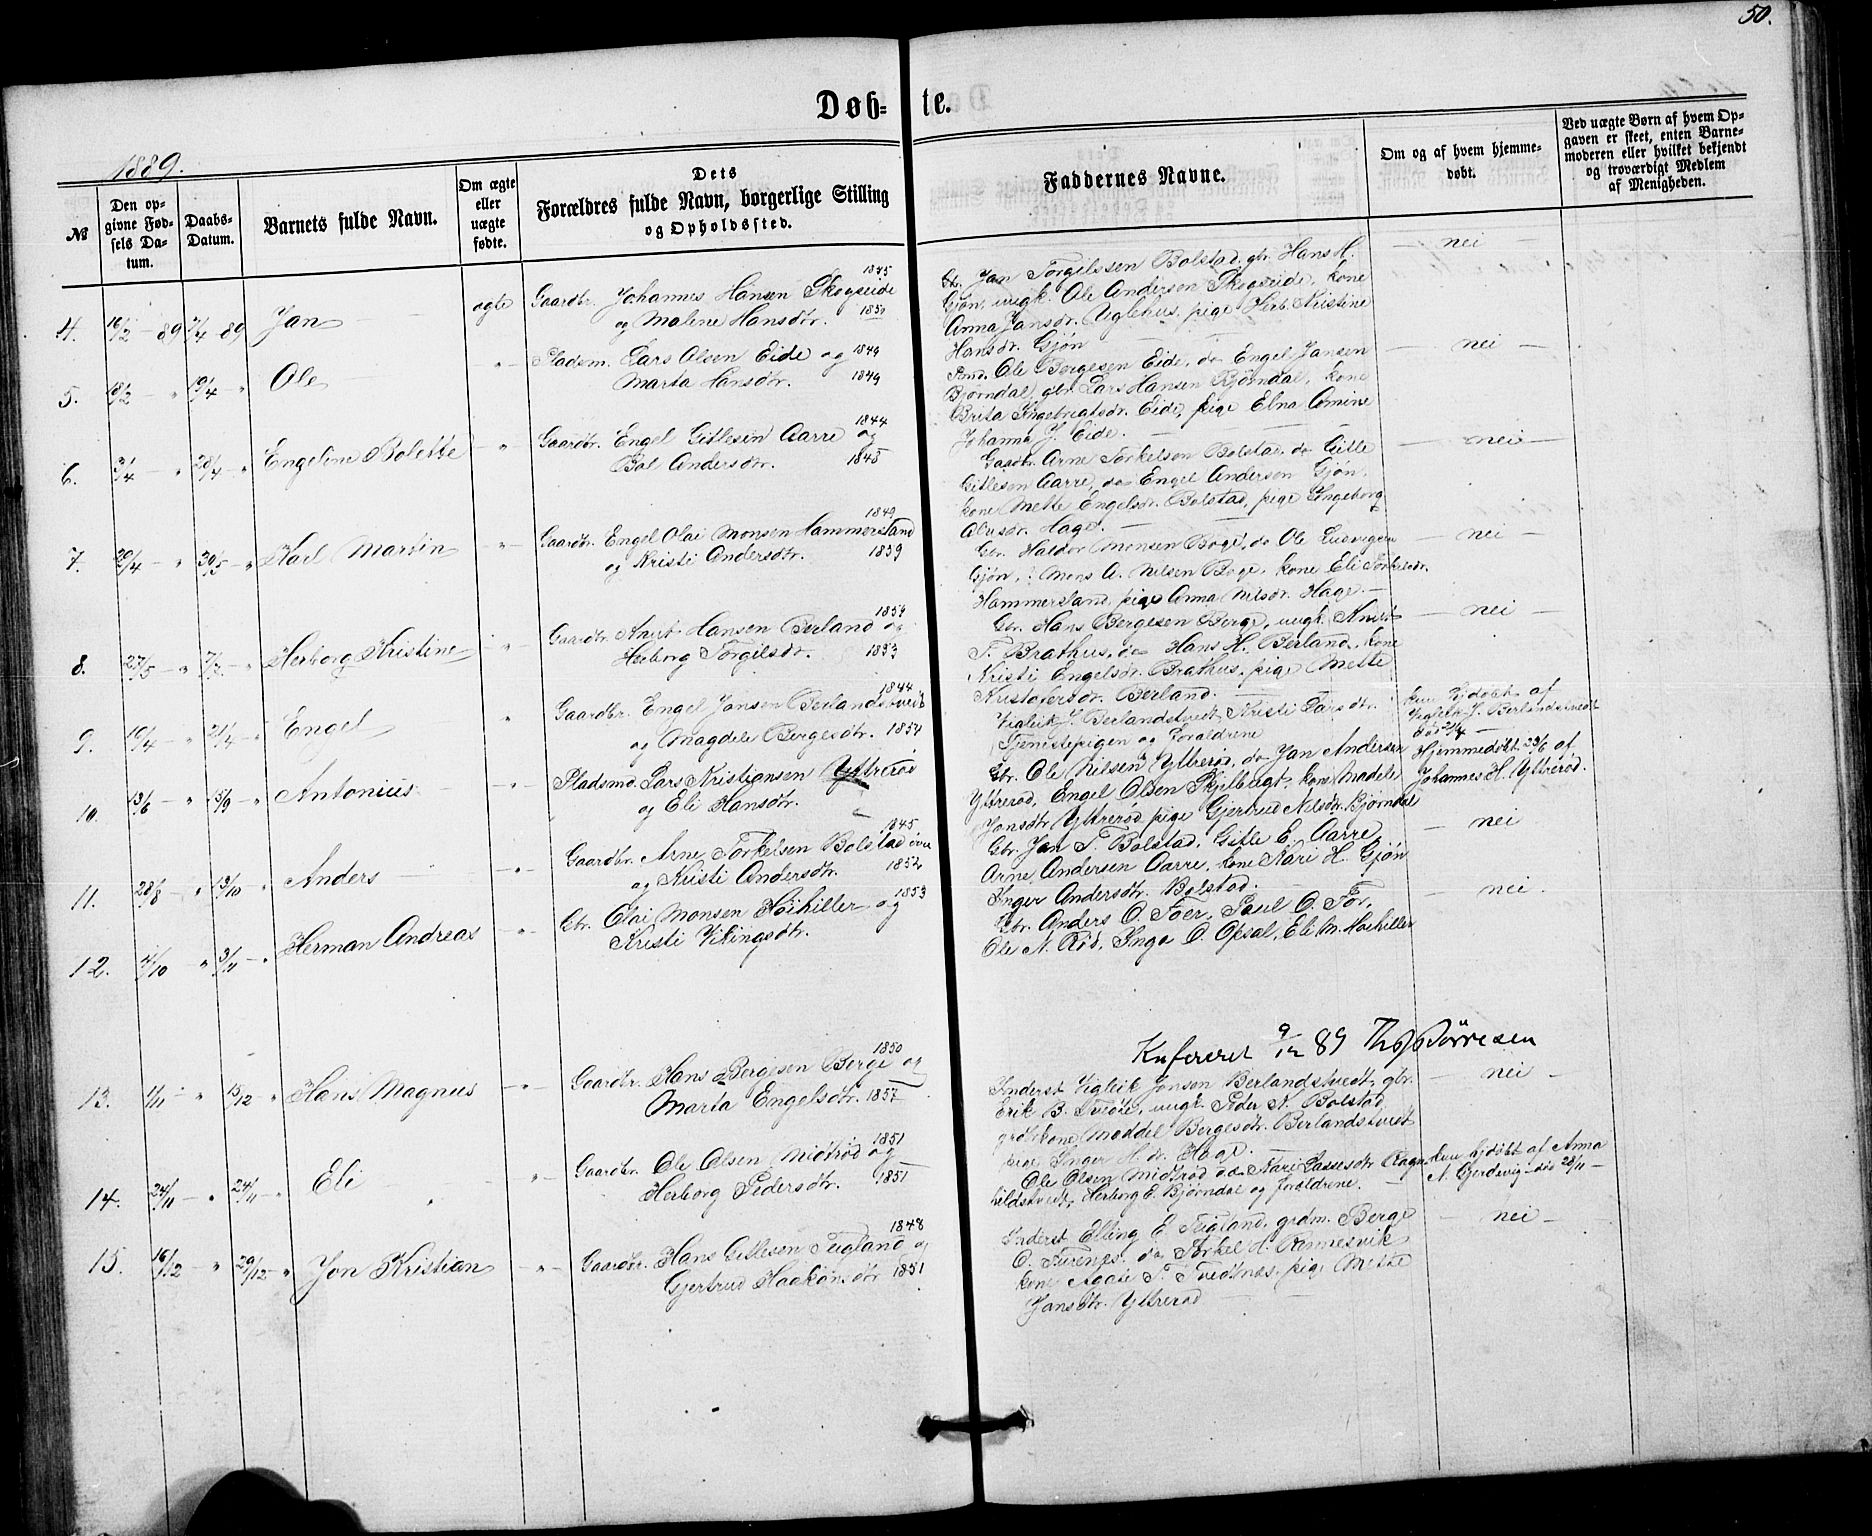 50.
Døb- te.
1889.
№
Den op-
givne Fød-
sels Da-
tum.
Daabs-
Datum.
Barnets fulde Navn.
Om ægte
eller
uægte
fødte.
Dets
Forældres fulde Navn, borgerlige Stilling
og Opholdssted.
Faddernes Navne.
Om og af hvem hjemme-
døbt.
Ved uægte Børn af hvem Op-
gaven er skeet, enten Barne-
moderen eller hvilket bekjendt
og troværdigt Medlem
af Menigheden.
4. 16/2 - 89 7/4 - 89 Jan ægte Gaardbr. Johannes Hansen Skogseide 1845
og Malene Hansdtr. 1850
Gbr. Jan Torgilssen Bolstad, gbr. Hans H.
Gjøn, ungk. Ole Andersen Skogseide, kone
Anna Jansdr. Uglehus, pige Herb. Kristine
Hansdr. Gjøn
- nei -
5. 18/2 - " 19/4 " Ole " Pladsm. Lars Olsen Eide og 1849
Marta Hansdtr. 1849
Ole Bergesen Eide, do Engel Jansen
Bjørndal, gbr. Lars Hansen Bjørndal, kone
Brita Ingebrigtsdr. Eide, pige Elna Comine
Johanna J. Eide.
- nei -
6. 3/4 - " 28/4 - " Engeline Bolette - " Gaardbr. Engel Gitlesen Aarre og 1844
Bol Andersdtr. 1848
Gaardbr. Arne Torkelsen Bolstad, do Gitle
Gitlesen Aarre, do Engel Andersen Gjøn,
kone Mette Engelsdr. Bolstad, pige Ingeborg
Olusdr. Hage.
- nei -
7. 20/4 - " 30/5 - " Karl Martin - " - Gaardbr. Engel Olai Monsen Hammersland 1849
og Kristi Andersdtr. 1859
Gbr. Haldor Monsen Boge, do Ole Ludvigsen
Gjøn, Mons A. Nilsen Boge, kone Eli Torkelsdr.
Hammersland, pige Anna Nilsdr. Hage.
- nei -
8. 27/5 - " 7/7 - " Herborg Kristine " - Gaardbr. Knut Hansen Berland og 1854
Herborg Torgilsdr. 1853
Gbr. Hans Bergesen Berge, ungk. Knut
T. Brathus, do Hans H. Berland, kone
Kristi Engelsdr. Brathus, pige Mette
Kristofersdr. Berland.
- nei -
9. 19/4 - " 21/4 - " Engel " Gaardbr. Engel Jansen Berlandstveit 1844
og Magdele Bergesdtr. 1854
Vigleik J. Berlandstvedt, Kristi Larsdtr.
Tjenistepigen og Forældrene
kun hjdøbt af
Vigleik J. Berlandstvedt
død 21/4
10. 13/6 - " 15/9 - " Antonius - " - Pladsmd. Lars Kristiansen Yttrerød
og Eli Hansdtr.
Gbr. Ole Nilsen Yttrerød, do Jan Andersen
Yttrerød, Engel Olsen Skjelbugt, kone Madele
Jansdtr Yttrerød, pige Gjertrud Nilsdtr. Bjørndal
Hjemmedøbt 23/6 af
Johannes H. Yttrerød.
11. 28/8 - " 13/10 - " Anders - " - Gaardbr. Arne Torkelsen Bolstad øvre 1845
og Kristi Andersdtr. 1852
Gbr. Jan T. Bolstad, Gitle E. Aarre,
Arne Andersen Aarre, kone Kari H. Gjøn
Inger Andersdtr. Bolstad.
- nei
12. 4/10 " 3/11 - " Herman Andreas - " - Gbr. Olai Monsen Høihiller og 1853
Kristi Vikingsdtr.
Gbr. Anders O. Foer, Poul O. For,
Ole N. Rød, Inga O. Opsal, Eli M. Høihiller
- nei -
Konfereret 9/12 89 Th. Børresen
13. 1/11 - " 15/12 " Hans Magnus - " - Gaardbr. Hans Bergesen Berge og 1850
Marta Engelsdtr. 1857
Inderst Vigleik Jansen Berlandstvedt, gbr.
Erik B. Tveit, ungk. Peder N. Bolstad
kone Maddel Bergesdtr. Berlandstvedt
pige Inger H. dr. Hage.
- nei -
14. 24/11 - " 24/11 " Eli " Gaardbr. Ole Olsen Midtrød og 1851
Herborg Pedersdtr. 1851
Ole Olsen Midtrød Kari Lassesdtr Ragn-
hildstvedt, Herborg E. Bjørndal og forældrene.
kun hjdøbt af Anna
N. Gjerdevig - død 28/11 -
15. 16/12 - " 29/12 - " Jon Kristian - " - Gaardbr. Hans Gitlesen Teigland og 1848
Gjertrud Haakonsdtr 1851
Inderst Elling E. Teigland, grdm. Berge
O. Furenes, do Torkel H. Rønnesvik
kone Agate T. Tvedtnæs, pige Mette
Jansdtr. Yttrerød
- nei -